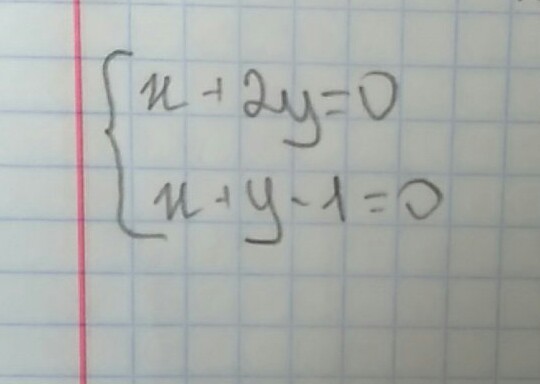 x + 2y = 0
x + y - 1 = 0